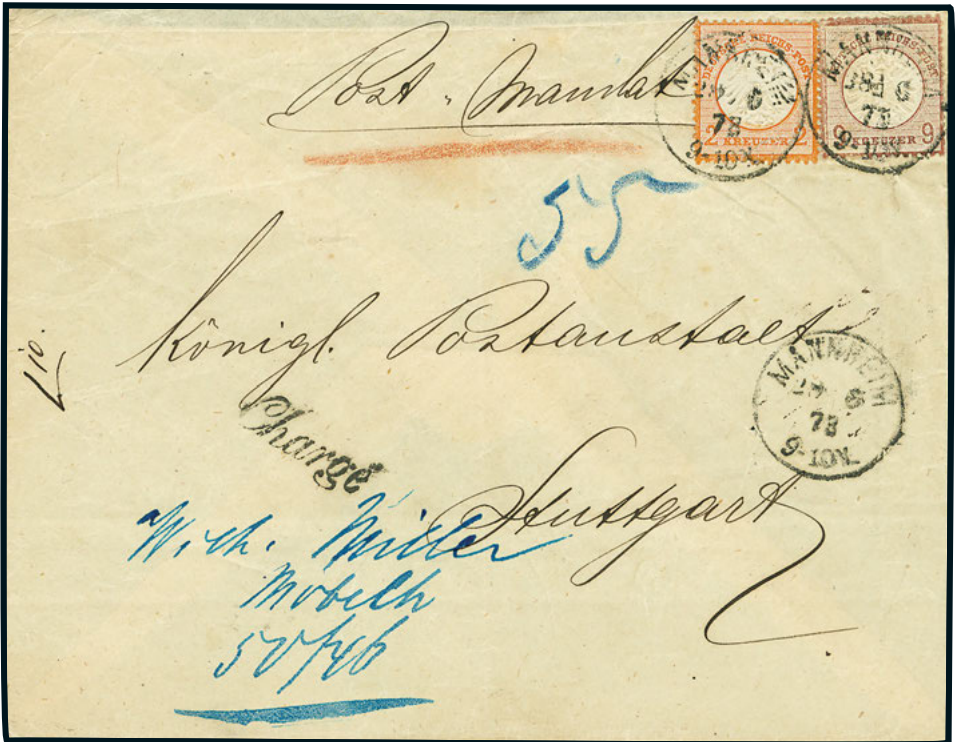 Post-Mandat
DEUTSCHE REICHS-POST
2 KREUZER 2
DEUTSCHE REICHS-POST
9 KREUZER 9
MANNHEIM
6
73
9-10V.
MANNHEIM
6
73
55
Königl. Postanstalt
MANNHEIM
6
73
9-10V.
Chargé
Stuttgart
Wilh. Müller
50/46